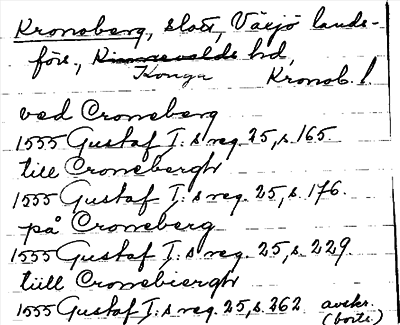 Kronoberg, slott, Växjö lands-
förs., Kinnevalds hd,
Konga Kronob. l.
ved Croneberg
1555 Gustaf I:s reg. 25, s. 165.
till Cronebergh
1555 Gustaf I:s reg. 25, s. 176.
på Croneberg
1555 Gustaf I:s reg. 25, s. 229.
tiill Cronebiergh
1555 Gustaf I:s reg. 25, s. 262 avskr.
(borte)